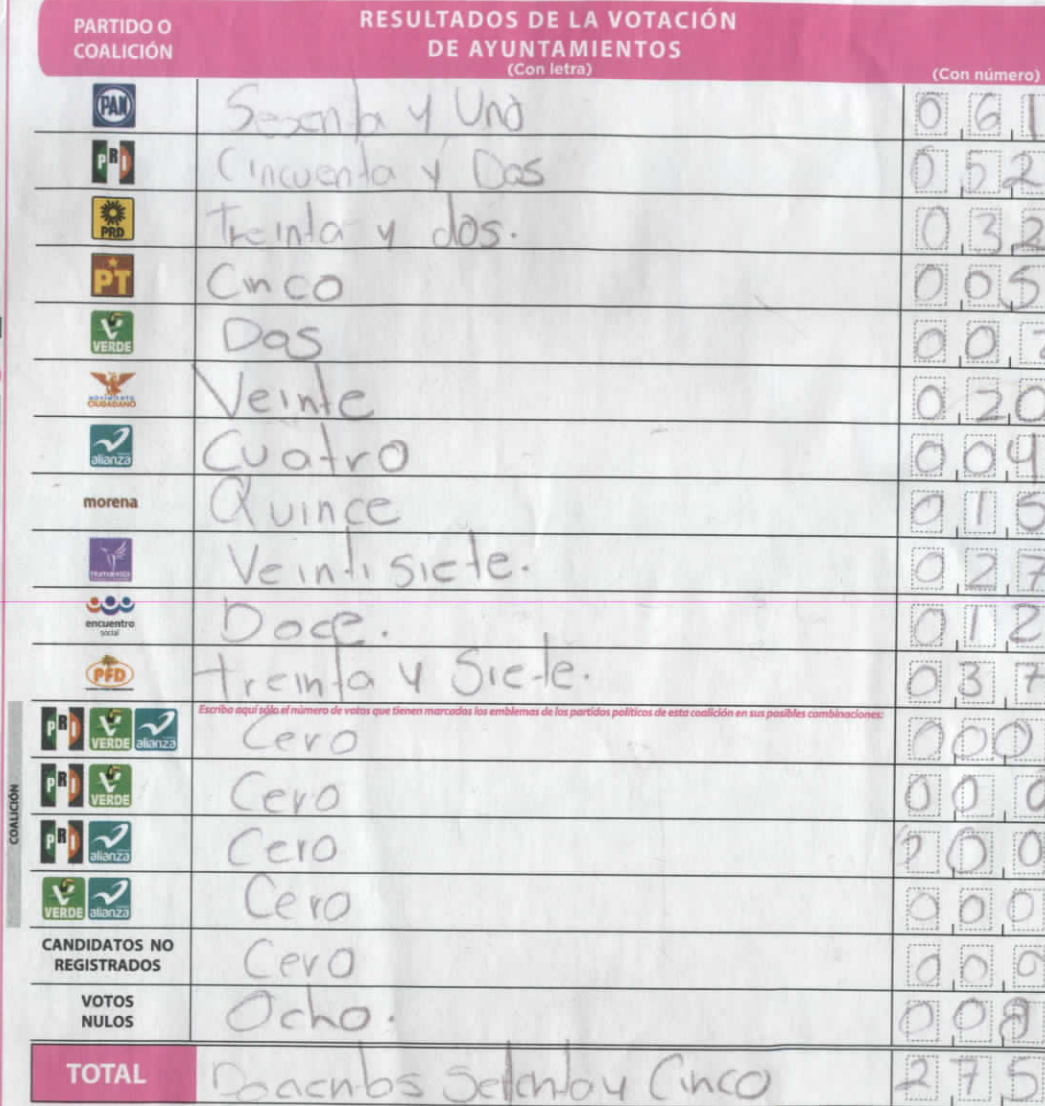 PARTIDO O
COALICIÓN
RESULTADOS DE LA VOTACIÓN
DE AYUNTAMIENTOS
(Con letra)
(Con número)
PAN Sesenta y Uno 061
PRI Cincuenta y Dos 052
PRD Treinta y dos. 032
PT Cinco 005
VERDE Dos 002
CIUDADANO Veinte 020
alianza Cuatro 004
morena Quince 015
Humanista Veinti siete. 027
encuentro social Doce. 012
PFD treinta y Siete. 037
Escriba aquí sólo el número de votos que tienen marcados los emblemas de los partidos políticos de esta coalición en sus posibles combinaciones:
COALICIÓN
PRI VERDE alianza Cero 000
PRI VERDE Cero 000
PRI alianza Cero 000
VERDE alianza Cero 000
CANDIDATOS NO
REGISTRADOS Cero 000
VOTOS
NULOS Ocho. 008
TOTAL Docientos Setenta y Cinco 275